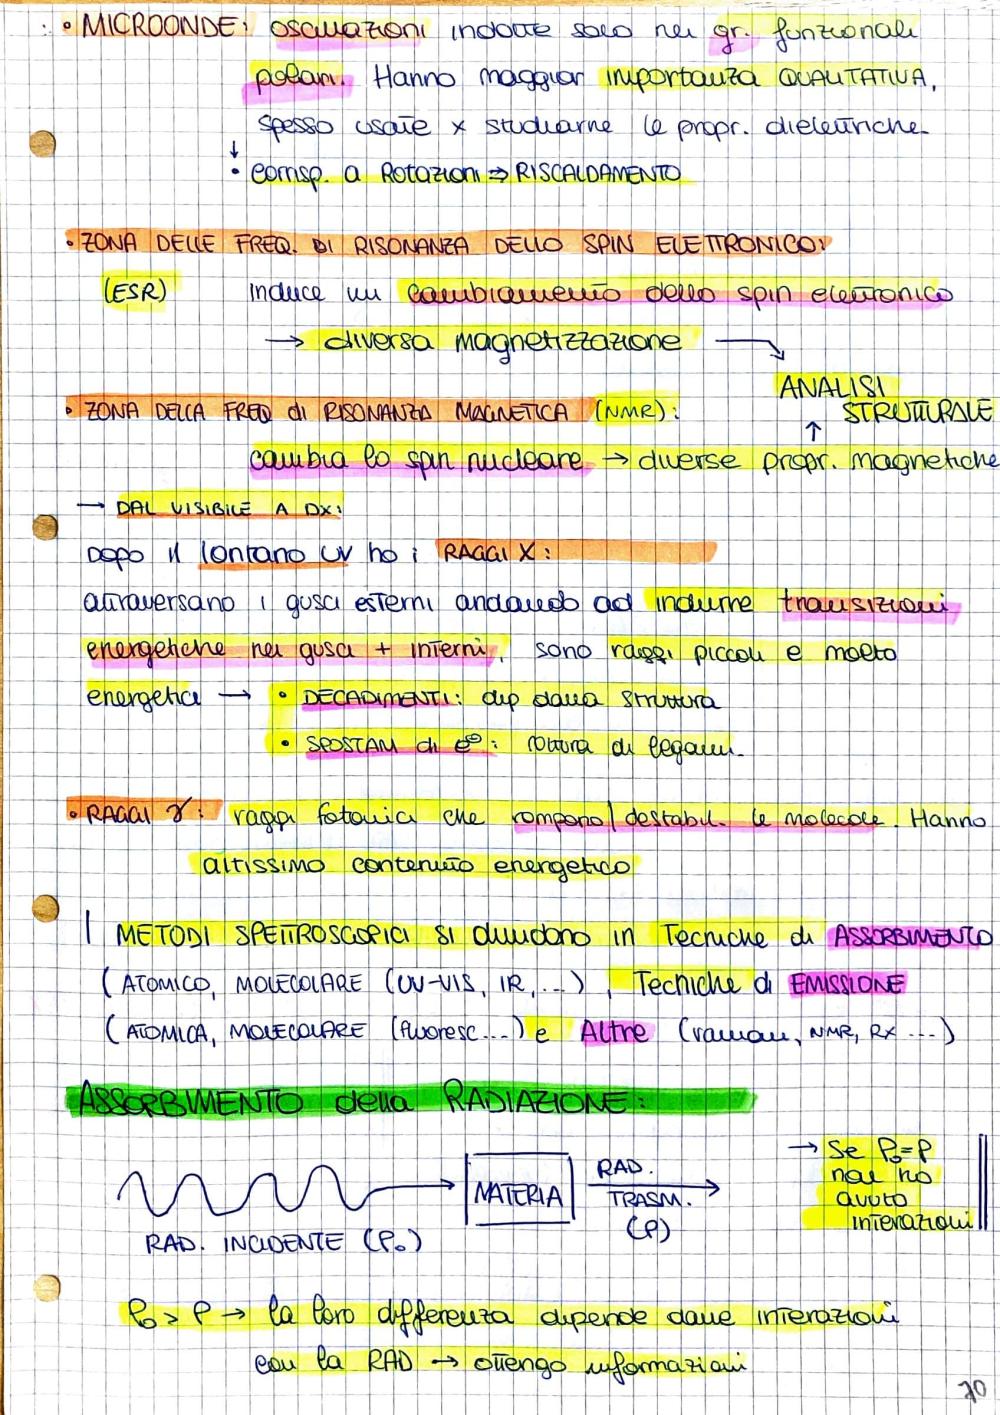 • MICROONDE: oscillazioni indotte solo nei gr. funzionali
polari. Hanno maggior importanza QUALITATIVA,
spesso usate x studiarne le propr. dielettriche.
↓
• corrisp. a Rotazioni ⇒ RISCALDAMENTO
• ZONA DELLE FREQ. DI RISONANZA DELLO SPIN ELETTRONICO:
(ESR) induce un cambiamento dello spin elettronico
→ diversa magnetizzazione →
ANALISI
STRUTTURALE
• ZONA DELLA FREQ di RISONANZA MAGNETICA (NMR): ↑
cambia lo spin nucleare → diverse propr. magnetiche
→ DAL VISIBILE A DX:
Dopo il lontano UV ho i RAGGI X:
attraversano i gusci esterni andando ad indurre transizioni
energetiche nei gusci + interni, sono raggi piccoli e molto
energetici → • DECADIMENTI: dip dalla struttura
• SPOSTAM di e⊖: rottura di legami.
• RAGGI γ: raggi fotonici che rompono/destabil. le molecole. Hanno
altissimo contenuto energetico
I METODI SPETTROSCOPICI si dividono in Tecniche di ASSORBIMENTO
(ATOMICO, MOLECOLARE (UV-VIS, IR, ...), Tecniche di EMISSIONE
(ATOMICA, MOLECOLARE (fluoresc...) e Altre (raman, NMR, RX ...)
ASSORBIMENTO della RADIAZIONE:
MATERIA
RAD.
TRASM.
(P)
RAD. INCIDENTE (P₀)
→ Se P₀=P
non ho
avuto
interazioni
P₀ > P → la loro differenza dipende dalle interazioni
con la RAD → ottengo informazioni
70